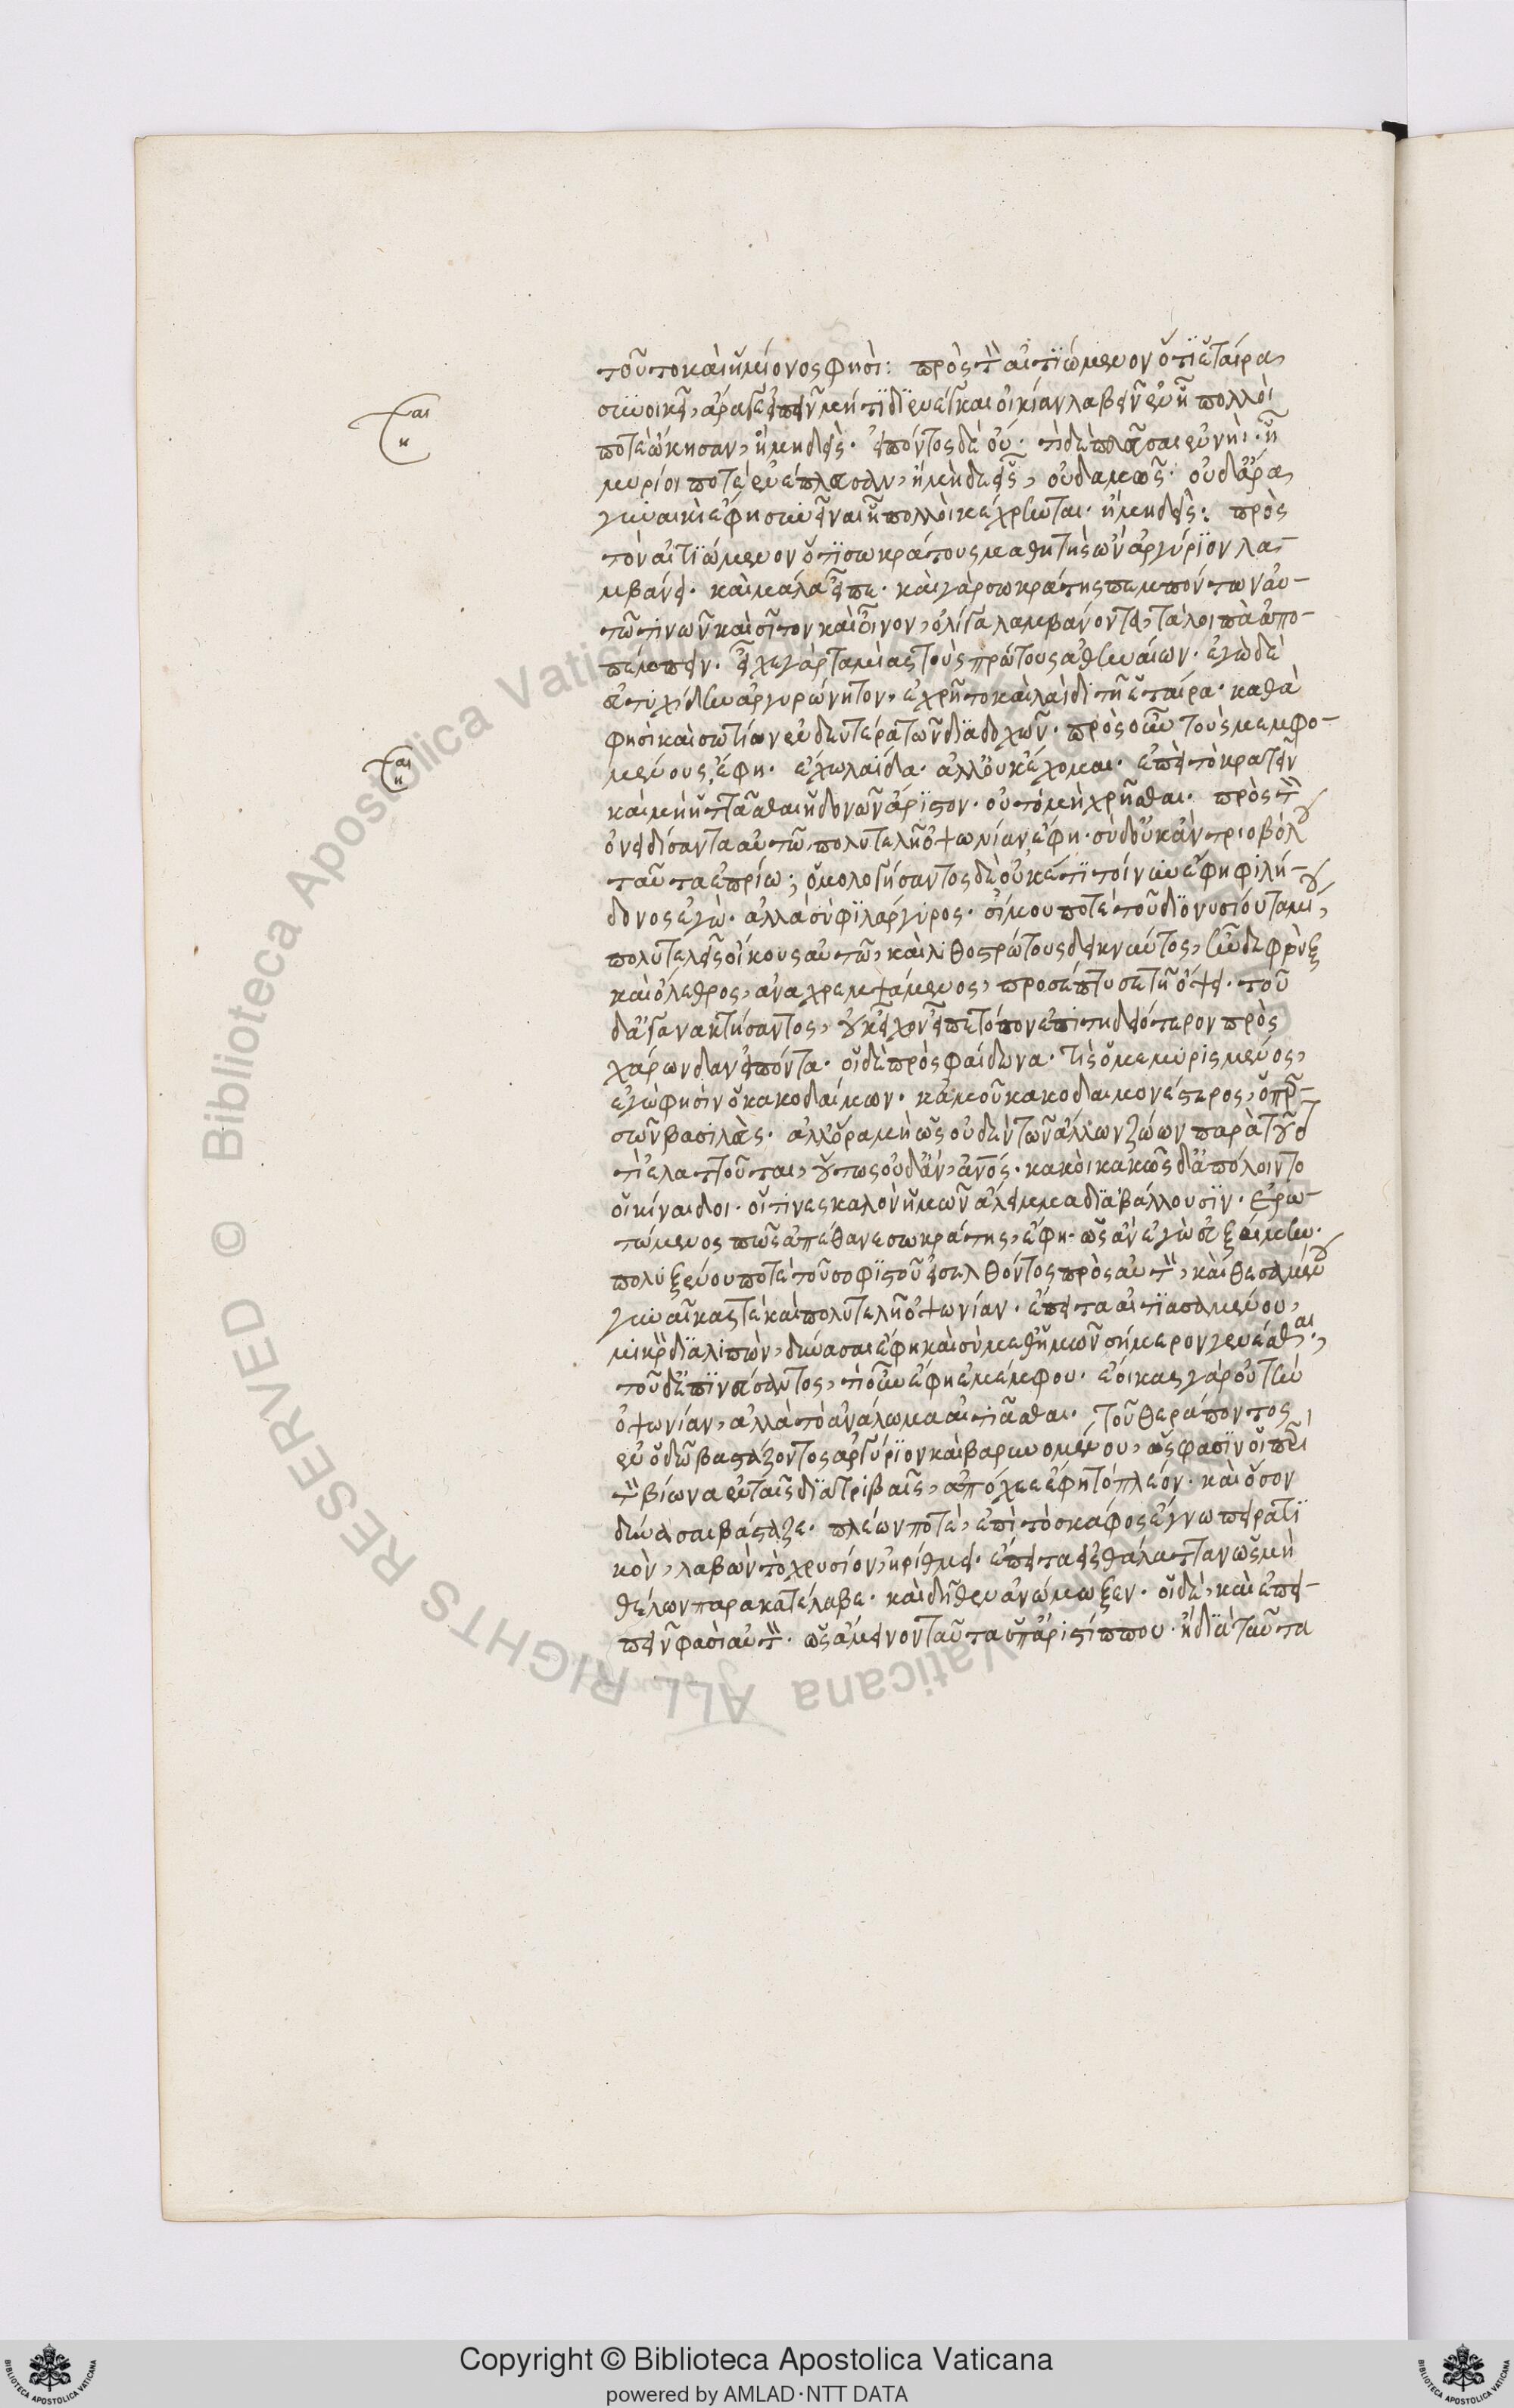 τοῦτο καὶ ἡμίονος φησί: πρὸς τὸν αἰτιώμενον ὅτι ἑταίρα
συνοικεῖ, ἆρά γε εἰπεῖν μή τι διενέγκαι οἰκίαν λαβεῖν ἐν ᾗ πολλοί
ποτε ᾤκησαν, ἢ μηδείς. εἰπόντος δὲ οὔ. τί δὲ πλεῦσαι ἐν νηὶ. ᾗ
μυρίοι ποτὲ ἐνέπλευσαν, ἢ μηδείς, οὐδαμῶς. οὐδ' ἄρα
γυναικὶ ἔφη συνεῖναι ᾗ πολλοὶ κέχρηνται. ἢ μηδείς: πρὸς
τὸν αἰτιώμενον ὅτι σωκράτους μαθητὴς ὢν ἀργύριον λα-
μβάνει. καὶ μάλα εἶπε. καὶ γὰρ σωκράτης πεμπόντων αὐ-
τῶ τινῶν καὶ σῖτον καὶ οἶνον, ὀλίγα λαμβάνοντα, τὰ λοιπὰ ἀπο-
πέμπειν. εἶχε γὰρ ταμίας τοὺς πρώτους ἀθηναίων. ἐγὼ δὲ
εὐτυχίδην ἀργυρώνητον, ἐχρῆτο καὶ λαΐδι τῆ ἑταίρα. καθά
φησι καὶ σωτίων ἐν δευτέρα τῶν διαδοχῶν. πρὸς οὖν τοὺς μεμφο-
μένους, ἔφη. ἔχω λαΐδα. ἀλλ' οὐκ ἔχομαι. ἐπεὶ τὸ κρατεῖν
καὶ μὴ ἡττᾶσθαι ἡδονῶν ἄριστον. οὐ τὸ μὴ χρῆσθαι. πρὸς τὸν
ὀνειδίσαντα αὐτῶ πολυτελῆ ὀψωνίαν ἔφη. σὺ δ' οὐκ ἂν τριοβόλου
ταῦτα ἐπρίω; ὁμολογήσαντος δὲ οὐκέτι τοίνυν ἔφη φιλή-
δονος ἐγώ. ἀλλὰ σὺ φιλάργυρος. σίμου ποτὲ τοῦ διονυσίου ταμίου,
πολυτελεῖς οἴκους αὐτῶ, καὶ λιθοστρώτους δεικνύντος, ἦν δὲ φρὺξ
καὶ ὄλεθρος, ἀναχρεμψάμενος, προσέπτυσε τῆ ὄψει. τοῦ
δ' ἀγανακτήσαντος, οὐκ εἶχον εἶπε τόπον ἐπιτηδειότερον πρὸς
χαρώνδαν εἰπόντα. οἱ δὲ πρὸς φαίδωνα. τίς ὁ μεμυρισμένος,
ἐγώ φησιν ὁ κακοδαίμων. κἀμοῦ κακοδαιμονέστερος, ὁ περ-
σῶν βασιλεύς. ἀλλ' ὅρα μὴ ὡς οὐδὲν τῶν ἄλλων ζώων παρὰ τοῦτό
τι ἐλαττοῦται, οὕτως οὐδ' ἂν, ἀνος. κακοὶ κακῶς δ' ἀπόλοιντο
οἱ κίναιδοι. οἵτινες καλὸν ἡμῶν ἄλειμμα διαβάλλουσιν. ἐρω-
τώμενος πῶς ἀπέθανε σωκράτης, ἔφη. ὡς ἂν ἐγὼ εὐξαίμην.
πολυξένου ποτὲ τοῦ σοφιστοῦ εἰσελθόντος πρὸς αὐτὸν, καὶ θεασαμένου
γυναῖκάς τε καὶ πολυτελῆ ὀψωνίαν. ἔπειτα αἰτιασαμένου,
μικρὸν διαλιπὼν, δύνασαι ἔφη καὶ σὺ μεθ' ἡμῶν σήμερον γενέσθαι,
τοῦ δ' ἐπινεύσαντος, τί οὖν ἔφη ἐμέμφου. ἔοικας γὰρ οὐ τὴν
ὀψωνίαν, ἀλλὰ τὸ ἀνάλωμα αἰτιᾶσθαι. τοῦ θεράποντος
ἐν ὁδῶ βαστάζοντος ἀργύριον καὶ βαρυνομένου, ὥς φασιν οἱ περὶ
τὸν βίωνα ἐν ταῖς διατριβαῖς, ἀπόχεε ἔφη τὸ πλέον. καὶ ὅσον
δύνασαι βάσταζε. πλέων ποτὲ, ἐπεὶ τὸ σκάφος ἔγνω πειρατι
κὸν, λαβὼν τὸ χρυσίον, ἠρίθμει. ἔπειτα εἰς θάλατταν ὡς μὴ
θέλων παρακατέλαβε. καὶ δῆθεν ἀνώμωξεν. οἱ δὲ, καὶ ἐπει-
πεῖν φασὶ αὐτὸν. ὡς ἄμεινον ταῦτα ὑπ' ἀριστίππου. ἢ διὰ ταῦτα
Copyright © Biblioteca Apostolica Vaticana
powered by AMLAD·NTT DATA